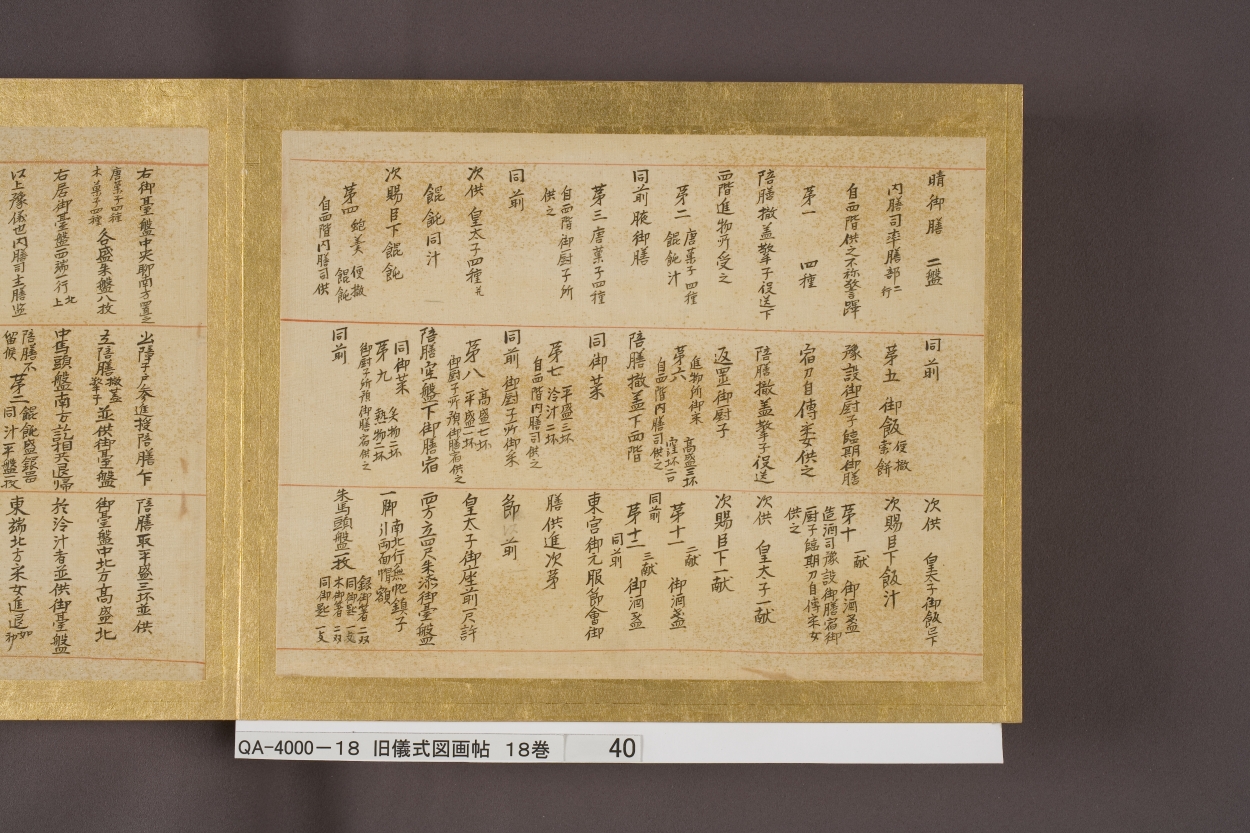 晴御膳 二盤
内膳司率膳部二行
自西階供之不称警蹕
第一 四種
陪膳撤盖擎子役送下
西階進物所受之
第二 唐菓子四種
餛飩汁
同前腋御膳
第三唐菓子四種
自西階御厨子所
供之
同前
次供 皇太子四種
餛飩同汁
次賜臣下餛飩
第四 鮑羹 便撤
餛飩
自西階内膳司供
同前
第五 御飯 便撤
索餅
豫設御厨子臨期御膳
宿刀自傳采女供之
陪膳撤盖擎子役送
返置御厨子
進物所御菜
第六 高盛三坏
窪坏二口
自西階内膳司供之
陪膳撤盖下西階
同御菜
第七 平盛三坏
冷汁二坏
自西階内膳司供之
同前 御厨子所御菜
第八 高盛七坏
平盛一坏
御厨子所預御膳宿供之
陪膳空盤下御膳宿
同御菜
第九 炙物二坏
熱物二坏
御厨子所預御膳宿供之
同前
次供 皇太子御飯已下
次賜臣下飯汁
第十 一献 御酒盞
造酒司豫設御膳宿御
厨子臨期刀自傳采女
供之
次供 皇太子一献
次賜臣下一献
第十一 二献 御酒盞
同前
第十二 三献 御酒盞
同前
東宮御元服節會御
膳供進次第
節 前
皇太子御座前一尺許
西方立四尺朱漆御臺盤
一脚 南北行無帊鎮子
引両面帽額
朱馬頭盤一枚 銀御箸二双
同御匙一支
木御箸二双
同御匙一支
右御臺盤中央聊南方置之
唐菓子四種
木菓子四種 各盛朱盤八枚
右居御臺盤西端一行北上
以上豫儀也内膳司主膳監
出障子戸参進授陪膳乍
立陪膳撤盖擎子並供御臺盤
中馬頭盤南方訖相共退帰
陪膳不
留候 第二 餛飩盛銀器
同汁平盤一枚
陪膳取平盛三坏並供
御臺盤中北方高盛北
於冷汁者並供御臺盤
東端北方采女進退如初
QA-4000-18 旧儀式図画帖 18巻 40